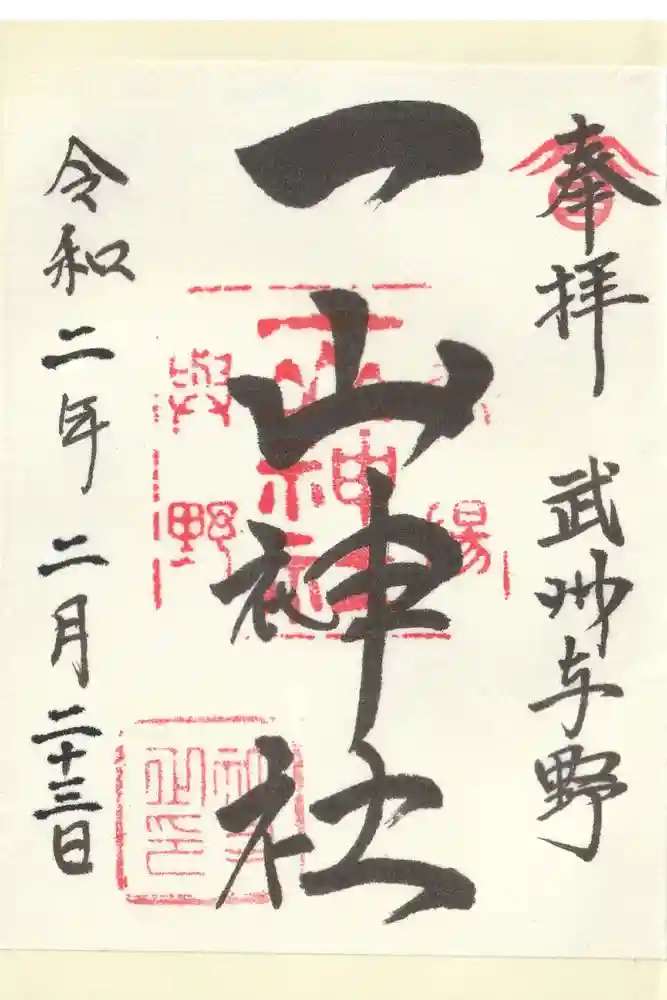 奉拝 武州与野
一山神社
令和二年 二月二十三日